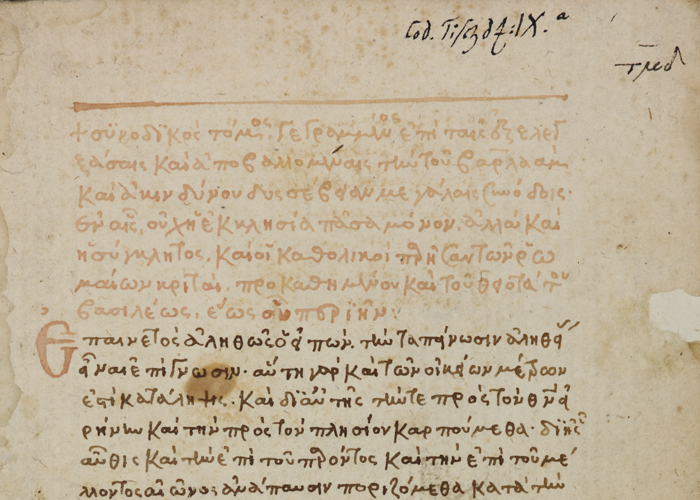 Cod. Tischdf: IX.ª
+ συνοδικὸς τόμος. γεγραμμένος ἐπὶ ταῖς ἐξελεγ
ξάσαις καὶ ἀποβαλλομέναις τὴν τοῦ βαρλαὰμ
καὶ ἀκινδύνου δυσσέβειαν μεγάλαις συνόδοις.
ἐν αἷς, οὐχ ἡ ἐκκλησία πᾶσα μόνον, ἀλλὰ καὶ
ἡ σύγκλητος, καὶ οἱ καθολικοὶ πλὴν ἁπάντων ῥω
μαίων κριταί, προκαθημένου καὶ τοῦ θειοτάτου
βασιλέως,
Ἐπαινετὸς ἀληθῶς ὁ εἰπών, τὴν ταπείνωσιν ἀληθείας
εἶναι ἐπίγνωσιν. αὕτη γὰρ καὶ τῶν οἰκείων μέτρων
ἐστὶ κατάληψις. καὶ δι' αὐτῆς τήν τε πρὸς τὸν θεὸν εἰ
ρήνην καὶ τὴν πρὸς τὸν πλησίον καρπούμεθα. δι' ἧς
αὖθις καὶ τὴν ἐπὶ τοῦ παρόντος καὶ τὴν ἐπὶ τοῦ μέλ
λοντος αἰῶνος ἀνάπαυσιν ποριζόμεθα κατὰ τὴν